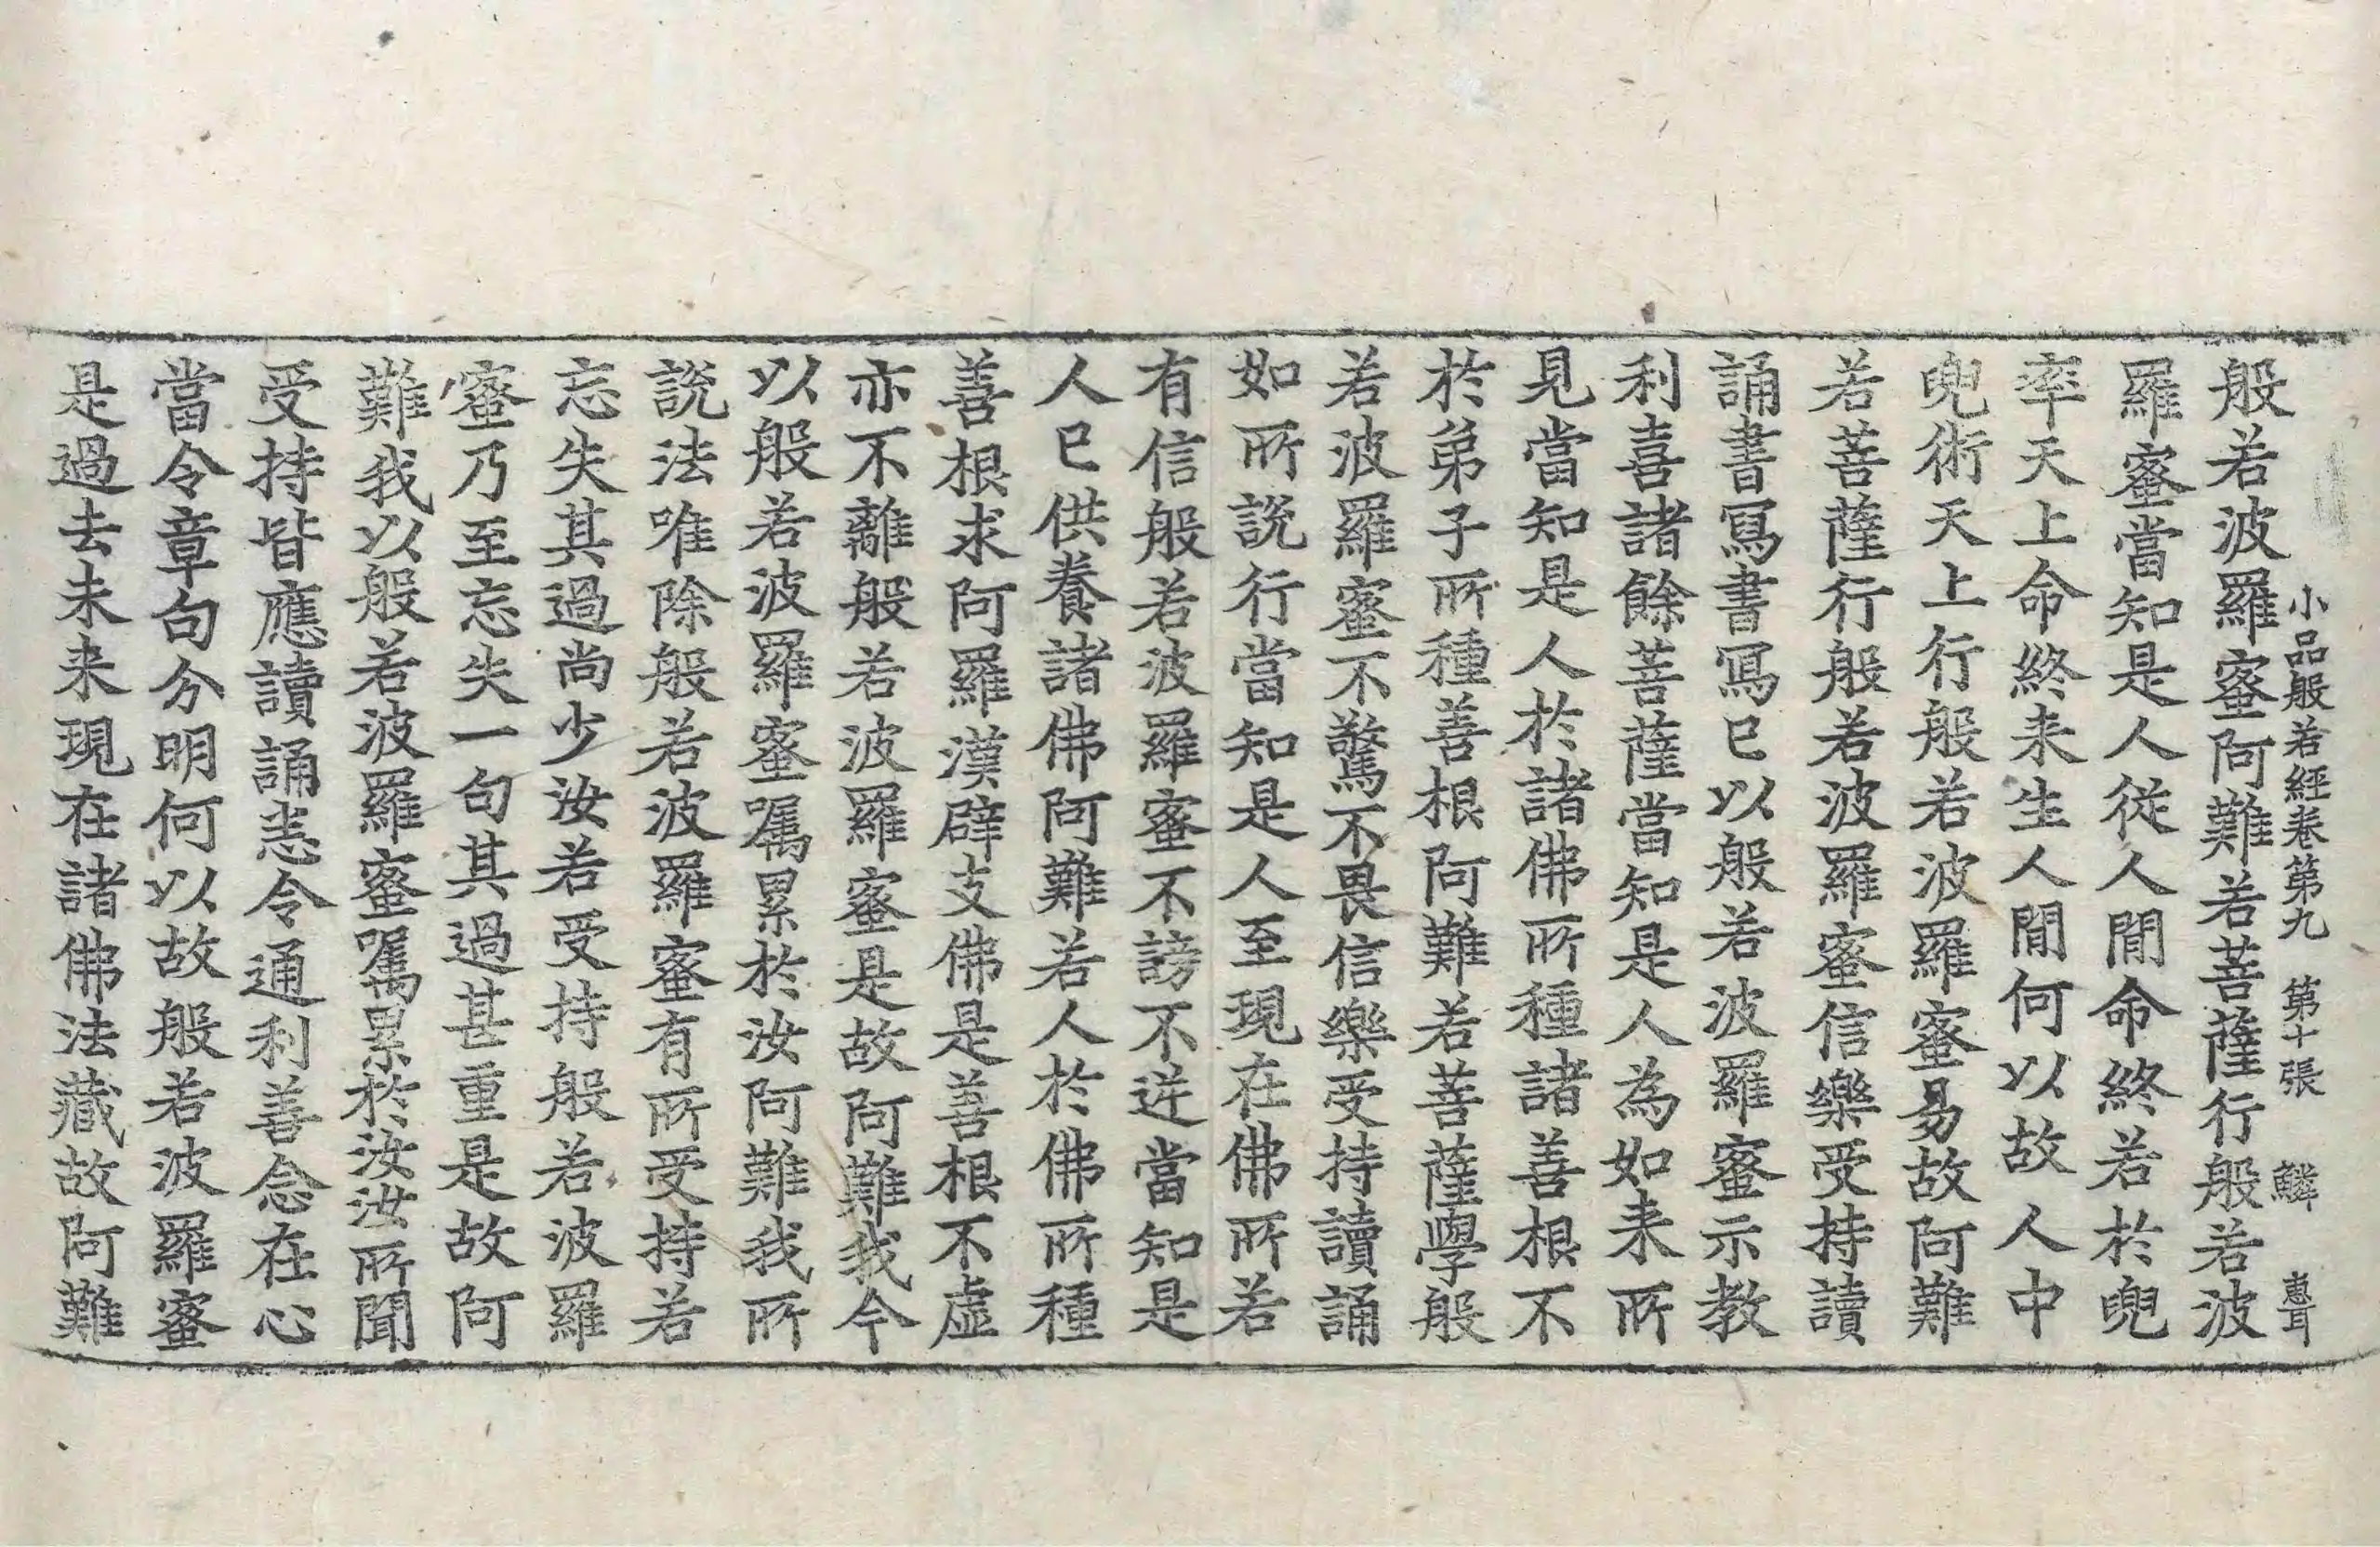 般若波羅蜜阿難若菩薩行般若波
小品般若經卷第九 第十張 鱗 惠耳
羅蜜當知是人從人間命終若於兜
率天上命終来生人間何以故人中
兜術天上行般若波羅蜜易故阿難
若菩薩行般若波羅蜜信樂受持讀
誦書寫書寫已以般若波羅蜜示教
利喜諸餘菩薩當知是人為如来所
見當知是人於諸佛所種諸善根不
於弟子所種善根阿難若菩薩學般
若波羅蜜不驚不畏信樂受持讀誦
如所說行當知是人至現在佛所若
有信般若波羅蜜不謗不逆當知是
人已供養諸佛阿難若人於佛所種
善根求阿羅漢辟支佛是善根不虛
亦不離般若波羅蜜是故阿難我今
以般若波羅蜜囑累於汝阿難我所
說法唯除般若波羅蜜有所受持若
忘失其過尚少汝若受持般若波羅
蜜乃至忘失一句其過甚重是故阿
難我以般若波羅蜜囑累於汝汝所聞
受持皆應讀誦悉令通利善念在心
當令章句分明何以故般若波羅蜜
是過去未来現在諸佛法藏故阿難